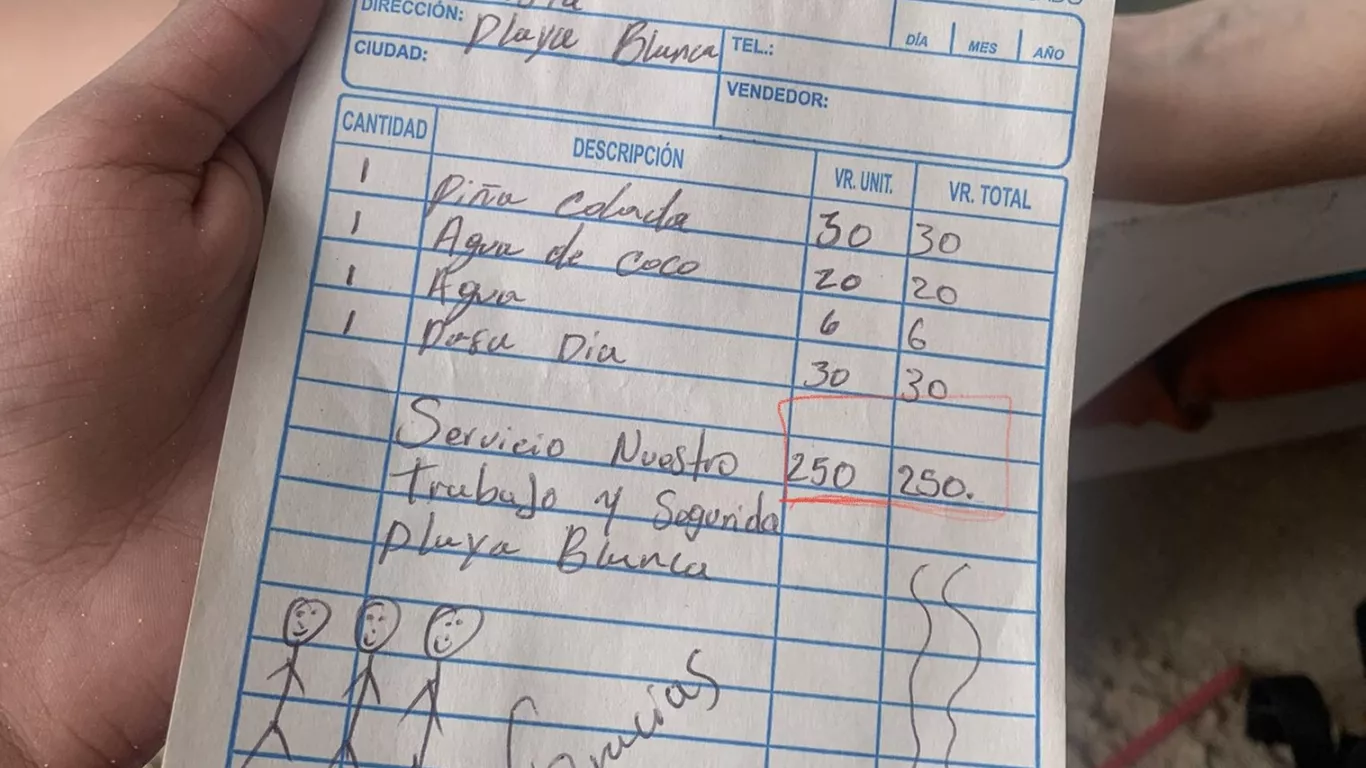 DIRECCIÓN: Playa Blanca
TEL.:
DÍA MES AÑO
CIUDAD:
VENDEDOR:
CANTIDAD DESCRIPCIÓN VR. UNIT. VR. TOTAL
1 Piña Colada 30 30
1 Agua de coco 20 20
1 Agua 6 6
1 Pasa Dia 30 30
Servicio Nuestro 250 250.
Trabajo y Segunda
Playa Blanca
Gracias